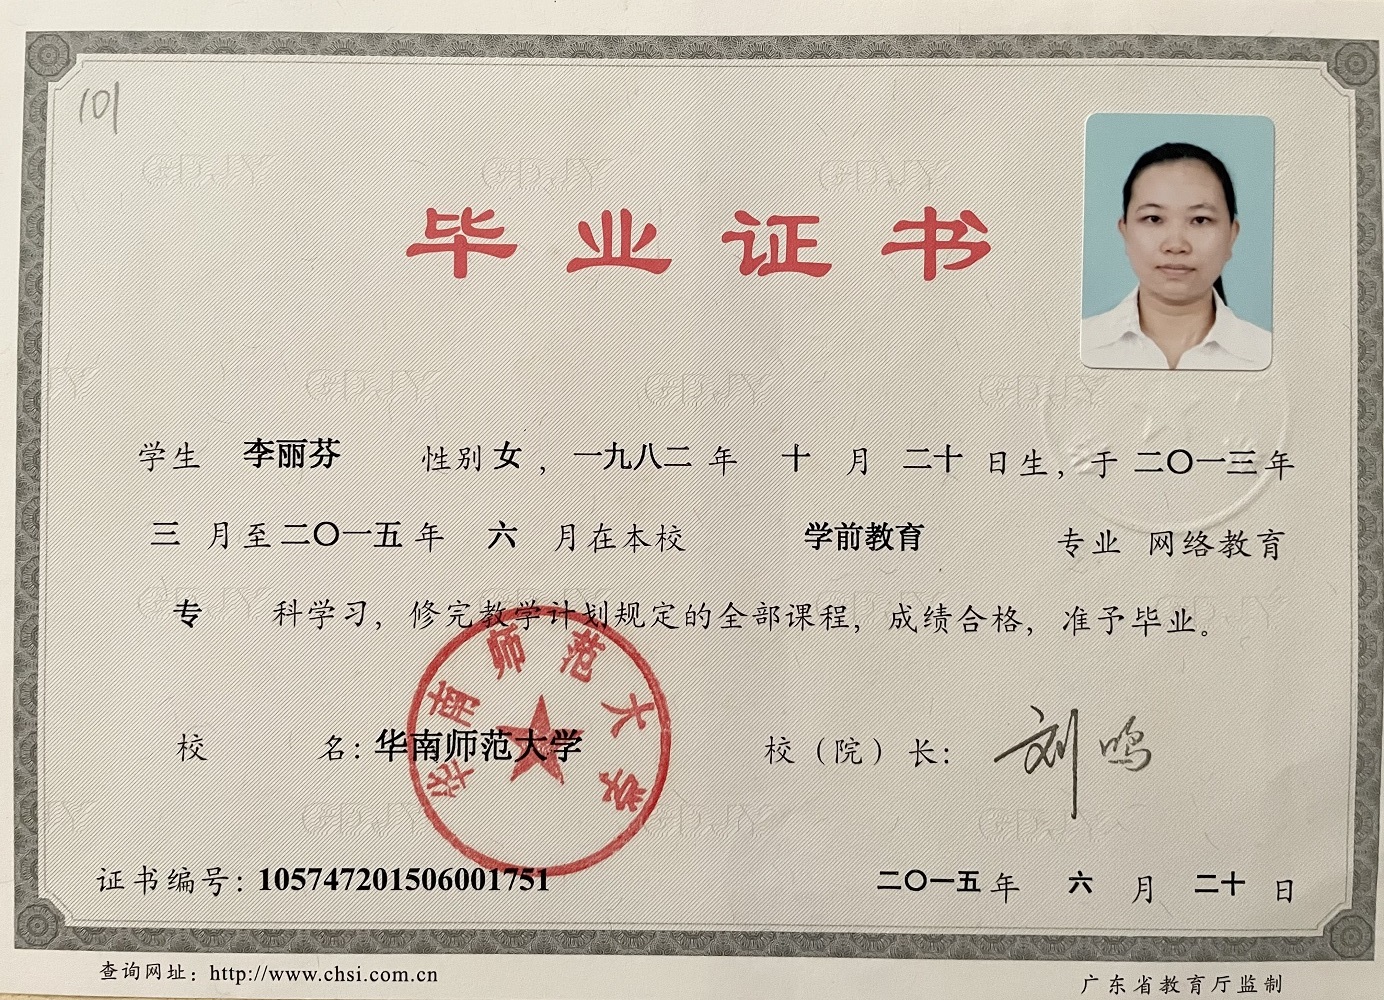 101
毕业证书
学生 李丽芬 性别 女 ，一九八二 年 十 月 二十 日生，于 二〇一三 年
三 月至 二〇一五 年 六 月在本校 学前教育 专业 网络教育
专 科学习，修完教学计划规定的全部课程，成绩合格，准予毕业。
华南师范大学
校 名：华南师范大学 校（院）长：刘鸣
证书编号：105747201506001751 二〇一五 年 六 月 二十 日
查询网址：http://www.chsi.com.cn 广东省教育厅监制
GDJY